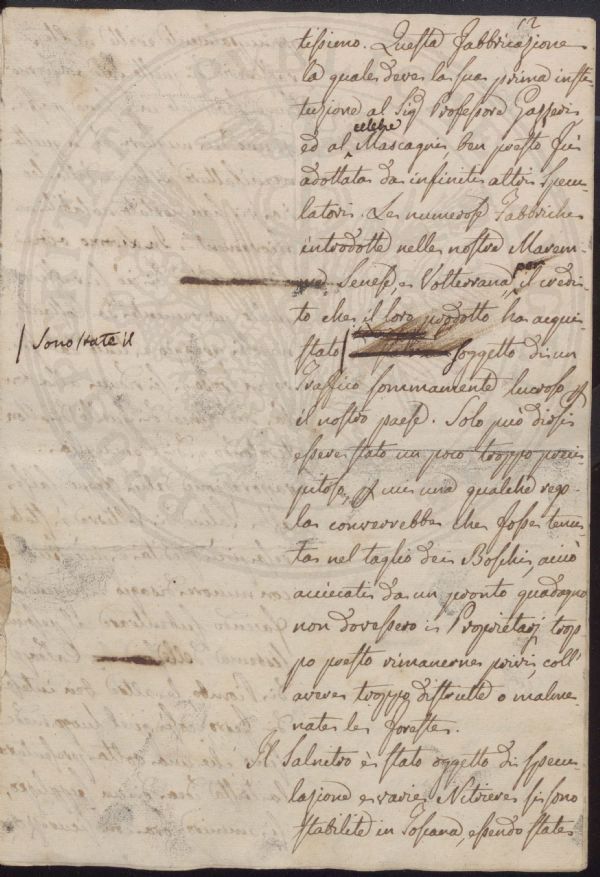 12
tissimo. Questa Fabbricazione
la quale deve la sua prima insti-
tuzione al Sig Professore Gasseri
celebre
ed al Mascagni, ben presto fù
adottata da infiniti altri Specu-
latori. Le numerose Fabbriche
introdotte nelle nostre Marem-
me Senese, e Volterrana per il credi-
to che il loro prodotto ha acqui-
stato soggetto di un
Sono state il
Traffico sommamente lucroso p
il nostro paese. Solo può dirsi
essere stato un poco troppo preci-
pitoso, p cui una qualche rego-
la converrebbe che fosse tenu-
ta nel taglio dei Boschi, acciò
acciecati da un pronto guadagno
non dovessero i Proprietarj trop-
po presto rimanerne privi, coll'
avere troppo distrutte o malme-
nate le foreste.
Il Salnitro è stato oggetto di specu-
lazione e varie Nitriere si sono
stabilite in Toscana, essendo state